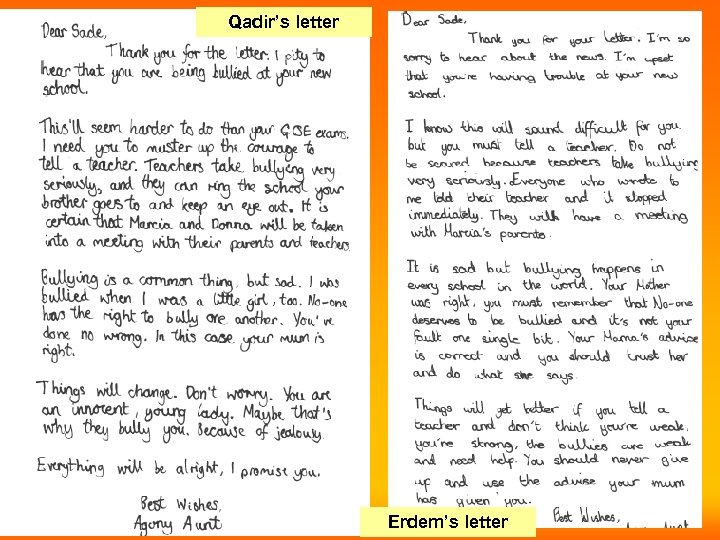 Qadir's letter
Dear Sade,
Thank you for the letter. I pity to
hear that you are being bullied at your new
school.
This'll seem harder to do than your GCSE exams.
I need you to muster up the courage to
tell a teacher. Teachers take bullying very
seriously, and they can ring the school your
brother goes to and keep an eye out. It is
certain that Marcia and Donna will be taken
into a meeting with their parents and teachers.
Bullying is a common thing, but sad. I was
bullied when I was a little girl, too. No-one
has the right to bully one another. You've
done no wrong. In this case your mum is
right.
Things will change. Don't worry. You are
an innocent, young lady. Maybe that's
why they bully you. Because of jealousy.
Everything will be alright, I promise you.
Best Wishes,
Agony Aunt
Dear Sade,
Thank you for your letter. I'm so
sorry to hear about the news. I'm upset
that you're having trouble at your new
school.
I know this will sound difficult for you
but you must tell a teacher. Do not
be scared because teachers take bullying
very seriously. Everyone who wrote to
me told their teacher and it stopped
immediately. They will have a meeting
with Marcia's parents.
It is sad but bullying happens in
every school in the world. Your Mother
was right, you must remember that No-one
deserves to be bullied and it's not your
fault one single bit. Your Mama's advise
is correct and you should trust her
and do what she says.
Things will get better if you tell a
teacher and don't think you're weak,
you're strong, the bullies are weak
and need help. You should never give
up and use the advise your mum
has given you.
Best Wishes,
Erdem's letter